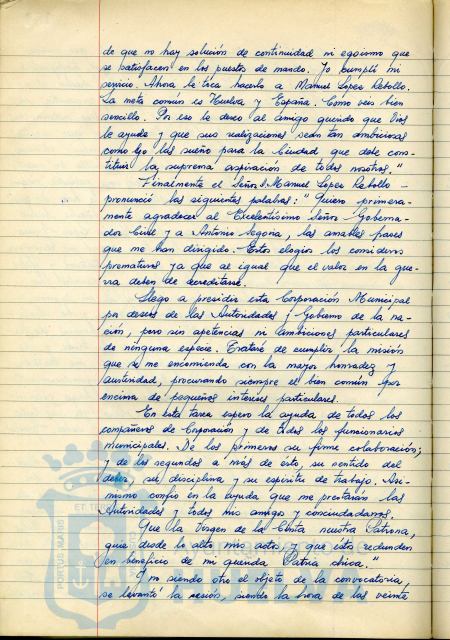 de que no hay solución de continuidad ni egoismo que
se satisfacen en los puestos de mando. Yo cumplí mi
servicio. Ahora le toca hacerlo a Manuel López Rebollo.
La meta común es Huelva y España. Como ves bien
sencillo. Por eso le deseo al amigo querido que Dios
le ayude y que sus realizaciones sean tan ambiciosas
como yo las sueño para la Ciudad que debe cons-
tituir la suprema aspiración de todos nosotros."
Finalmente el Señor D. Manuel López Rebollo -
pronunció las siguientes palabras: "Quiero primera-
mente agradecer al Excelentísimo Señor Goberna-
dor Civil y a Antonio Segovia, las amables frases
que me han dirigido. Estos elogios los considero
prematuros ya que al igual que el valor en la gue-
rra deben de acreditarse.
Llego a presidir esta Corporación Municipal
por deseos de las Autoridades y Gobierno de la na-
ción, pero sin apetencias ni ambiciones particulares
de ninguna especie. Trataré de cumplir la misión
que se me encomienda con la mayor honradez y
austeridad, procurando siempre el bien común por
encima de pequeños intereses particulares.
En esta tarea espero la ayuda de todos los
compañeros de Corporación y de todos los funcionarios
municipales. De los primeros su firme colaboración;
y de los segundos a más de ésto, su sentido del
deber, su disciplina y su espíritu de trabajo. Asi-
mismo confío en la ayuda que me prestarán las
Autoridades y todos mis amigos y conciudadanos.
Que la Virgen de la Cinta nuestra Patrona,
guíe desde lo alto mis actos y que éstos redunden
en beneficio de mi querida Patria chica."
Y no siendo otro el objeto de la convocatoria,
se levantó la sesión, siendo la hora de las veinte
PORTUS MARIS
ET TE